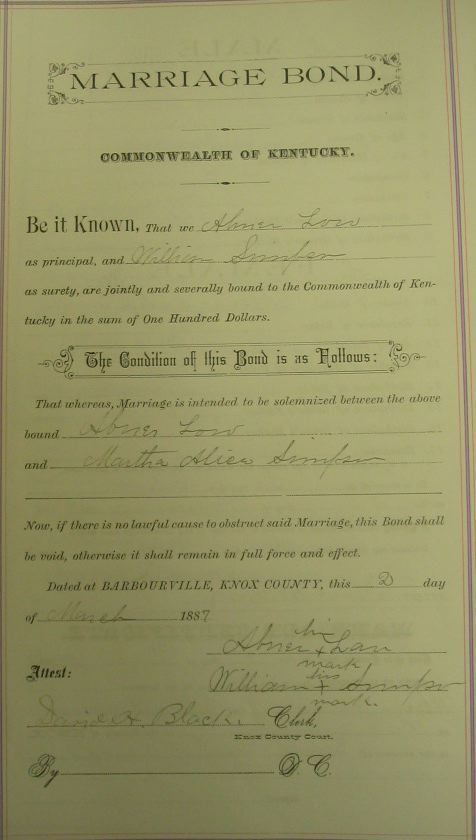 MARRIAGE BOND.
COMMONWEALTH OF KENTUCKY.
Be it Known, That we Abner Low
as principal, and William Simpson
as surety, are jointly and severally bound to the Commonwealth of Ken-
tucky in the sum of One Hundred Dollars.
The Condition of this Bond is as Follows:
That whereas, Marriage is intended to be solemnized between the above
bound Abner Low
and Martha Alice Simpson
Now, if there is no lawful cause to obstruct said Marriage, this Bond shall
be void, otherwise it shall remain in full force and effect.
Dated at BARBOURVILLE, KNOX COUNTY, this 2 day
of March 1887
his
Abner x Law
mark
Attest:
his
William x Simpson
mark.
David H. Black Clerk,
Knox County Court.
By D. C.